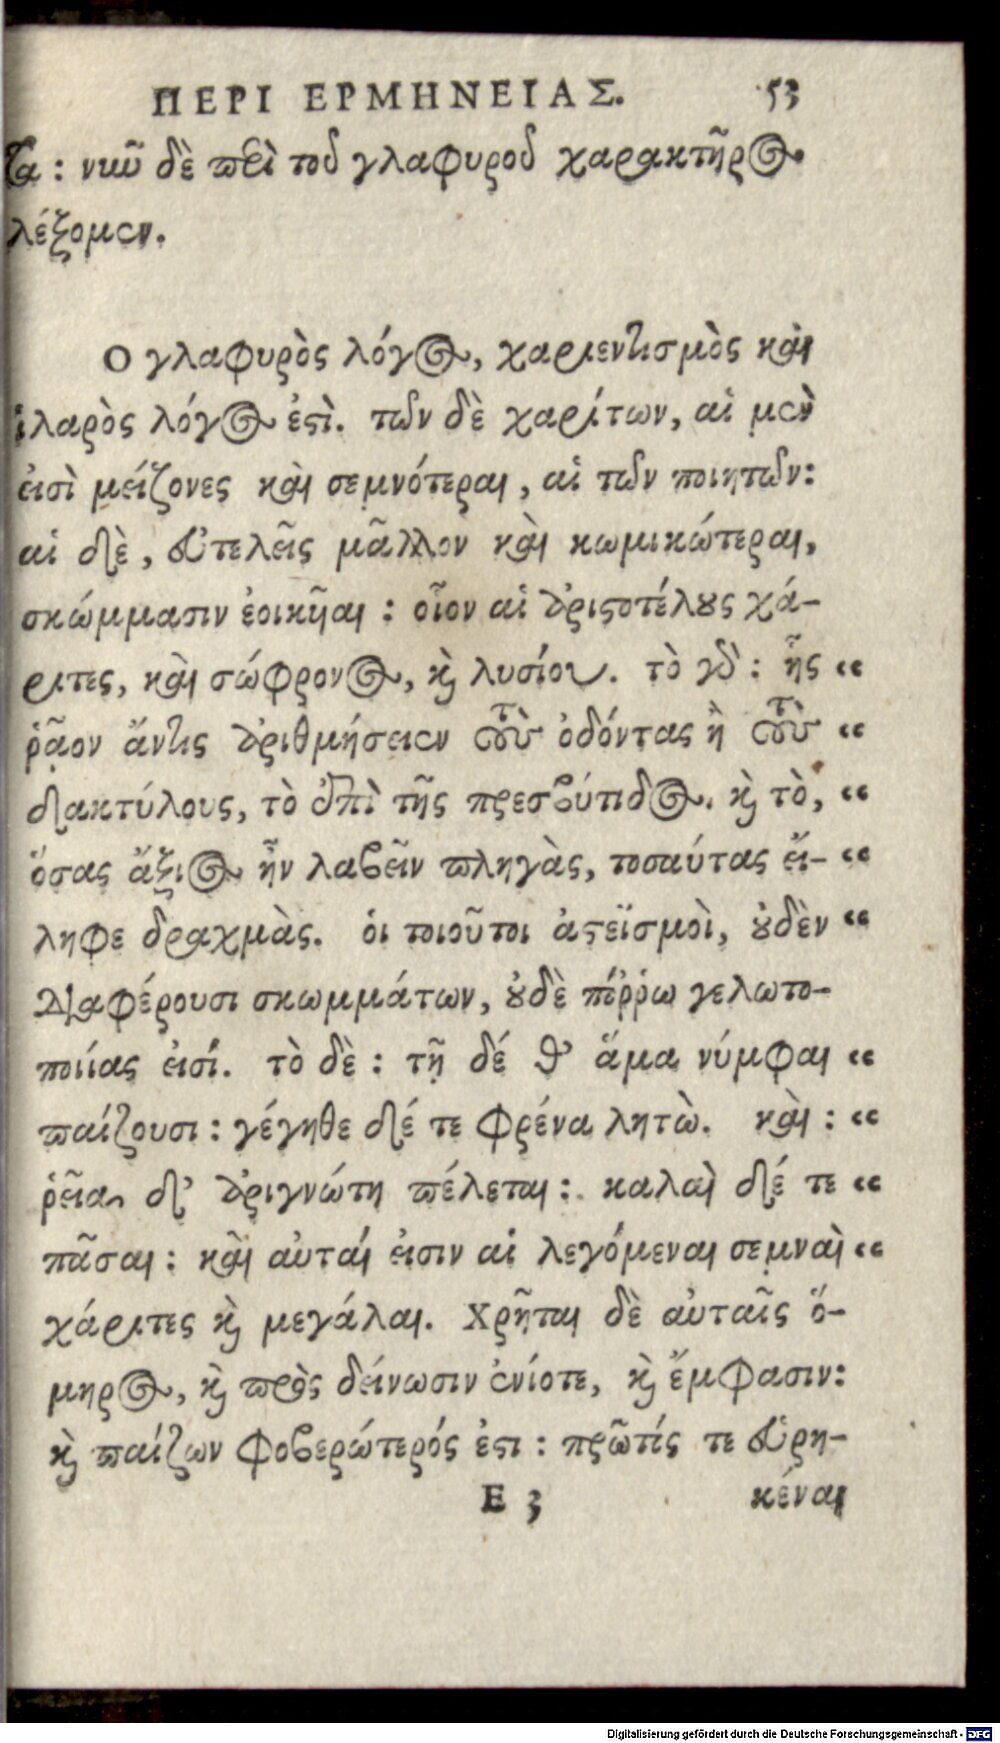 ΠΕΡΙ ΕΡΜΗΝΕΙΑΣ. 53
τα: νῦν δὲ περὶ τοῦ γλαφυροῦ χαρακτῆρος
λέξομεν.
Ο γλαφυρὸς λόγος, χαριεντισμὸς καὶ
ἱλαρὸς λόγος ἐστί. τῶν δὲ χαρίτων, αἱ μὲν
εἰσὶ μείζονες καὶ σεμνότεραι, αἱ τῶν ποιητῶν:
αἱ δὲ, εὐτελεῖς μᾶλλον καὶ κωμικώτεραι,
σκώμμασιν ἐοικῆαι: οἷον αἱ ἀριστοτέλους χά-
ριτες, καὶ σώφρονος, καὶ λυσίου. τὸ γὰρ: ἧς “
ῥᾷον ἄν τις ἀριθμήσειεν τοὺς ὀδόντας ἢ τοὺς “
δακτύλους, τὸ ἐπὶ τῆς πρεσβύτιδος. καὶ τὸ, “
ὅσας ἄξιος ἦν λαβεῖν πληγὰς, τοσαύτας εἴ- “
ληφε δραχμὰς. οἱ τοιοῦτοι ἀστεϊσμοὶ, οὐδὲν “
διαφέρουσι σκωμμάτων, οὐδὲ πόρρω γελωτο-
ποιίας εἰσί. τὸ δὲ: τῇ δέ θ’ ἅμα νύμφαι “
παίζουσι: γέγηθε δέ τε φρένα λητὼ. καὶ: “
ῥεῖα δ’ ἀριγνώτη πέλεται: καλαὶ δέ τε “
πᾶσαι: καὶ αὐταί εἰσιν αἱ λεγόμεναι σεμναὶ “
χάριτες καὶ μεγάλαι. Χρῆται δὲ αὐταῖς ὅ-
μηρος, καὶ πρὸς δείνωσιν ἐνίοτε, καὶ ἔμφασιν:
καὶ παίζων φοβερώτερός ἐστι: πρῶτός τε εὑρη-
Ε 3 κέναι
Digitalisierung gefördert durch die Deutsche Forschungsgemeinschaft - DFG